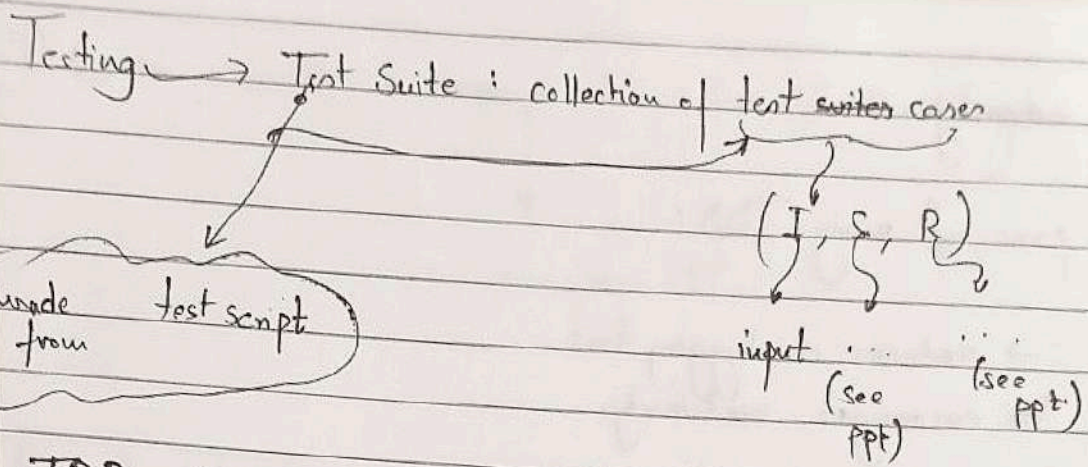 Testing → Test Suite : collection of test suites cases
(I, S, R)
made test script
from
input ... ...
(see ppt) (see ppt)